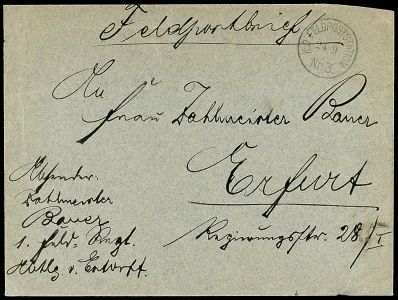 Feldpostbrief
K.D. FELDPOSTSTATION
Nr 3.
An
Frau Zahlmeister Bauer
Erfurt
Regierungsstr. 28/I
Absender:
Zahlmeister
Bauer
1. Feld-Regt.
Abtlg v. Estorff.